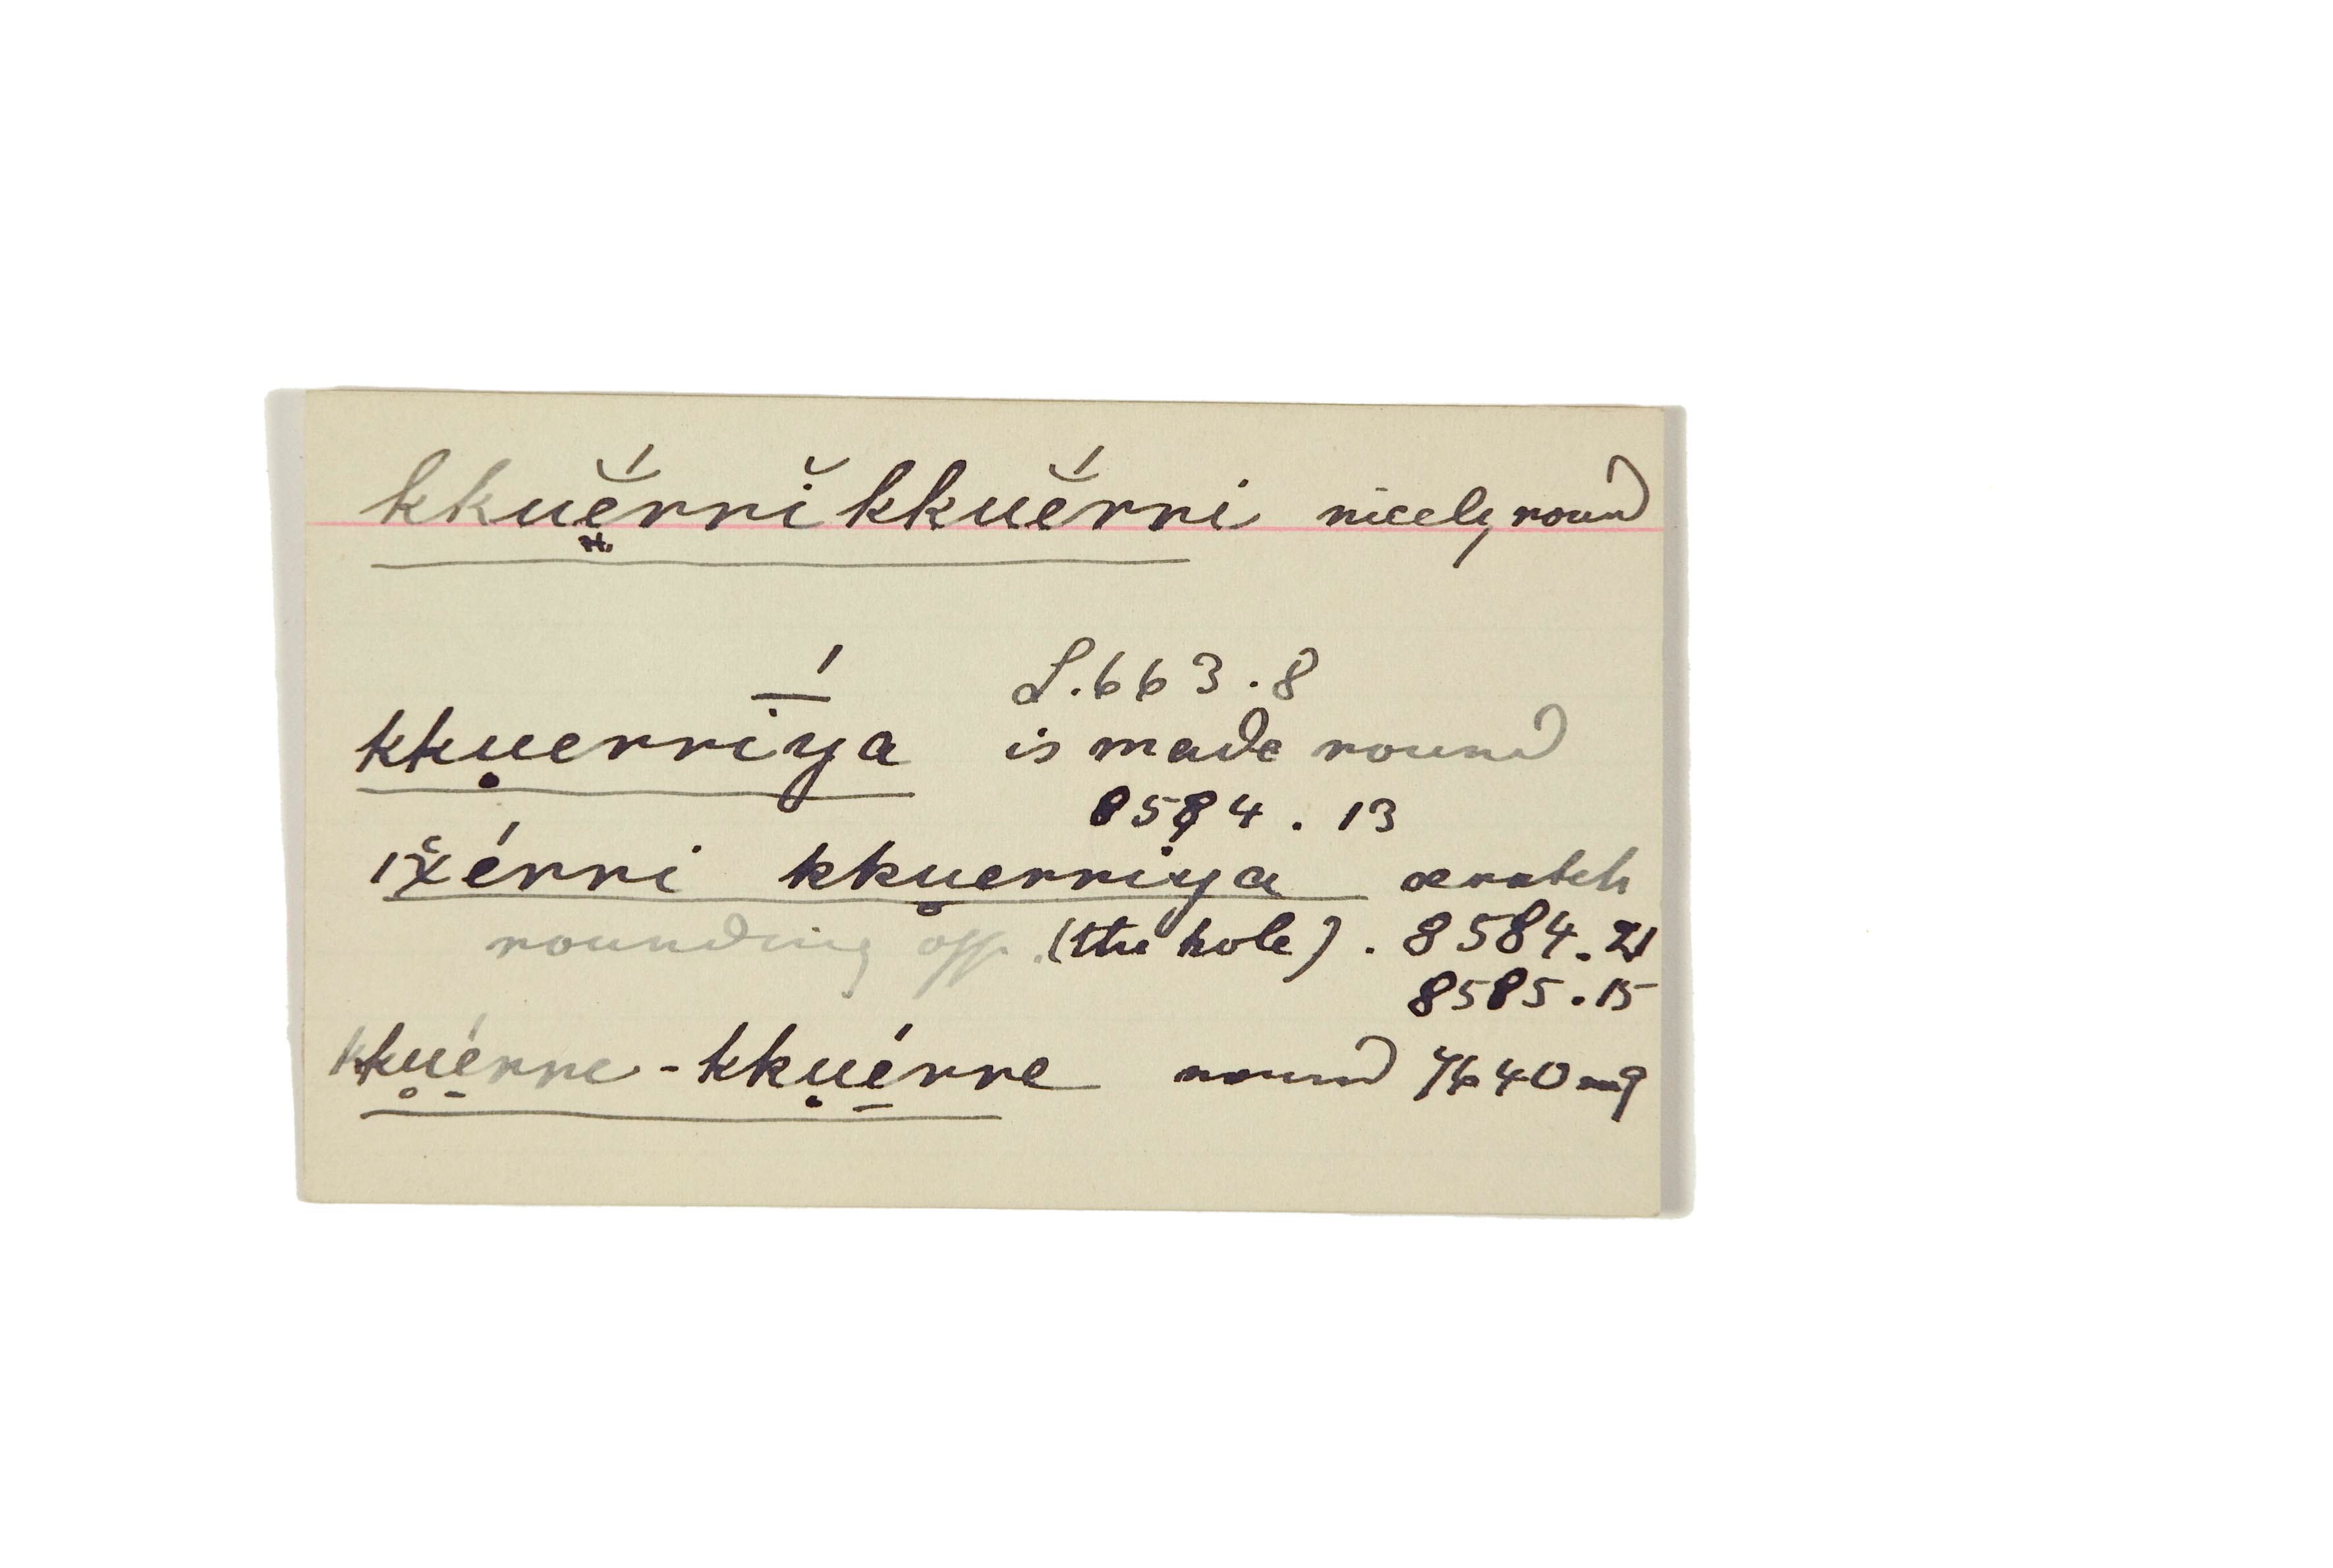 kkuĕ́rrĭkkuĕ́rri nicely round
L.663.8
kku̦errī́ya is made round
8584.13
ıx̌érri kku̦erriya scratch
rounding off (the hole). 8584.21
8585.15
kku̥é̱rre-kkụé̱rre round 7640